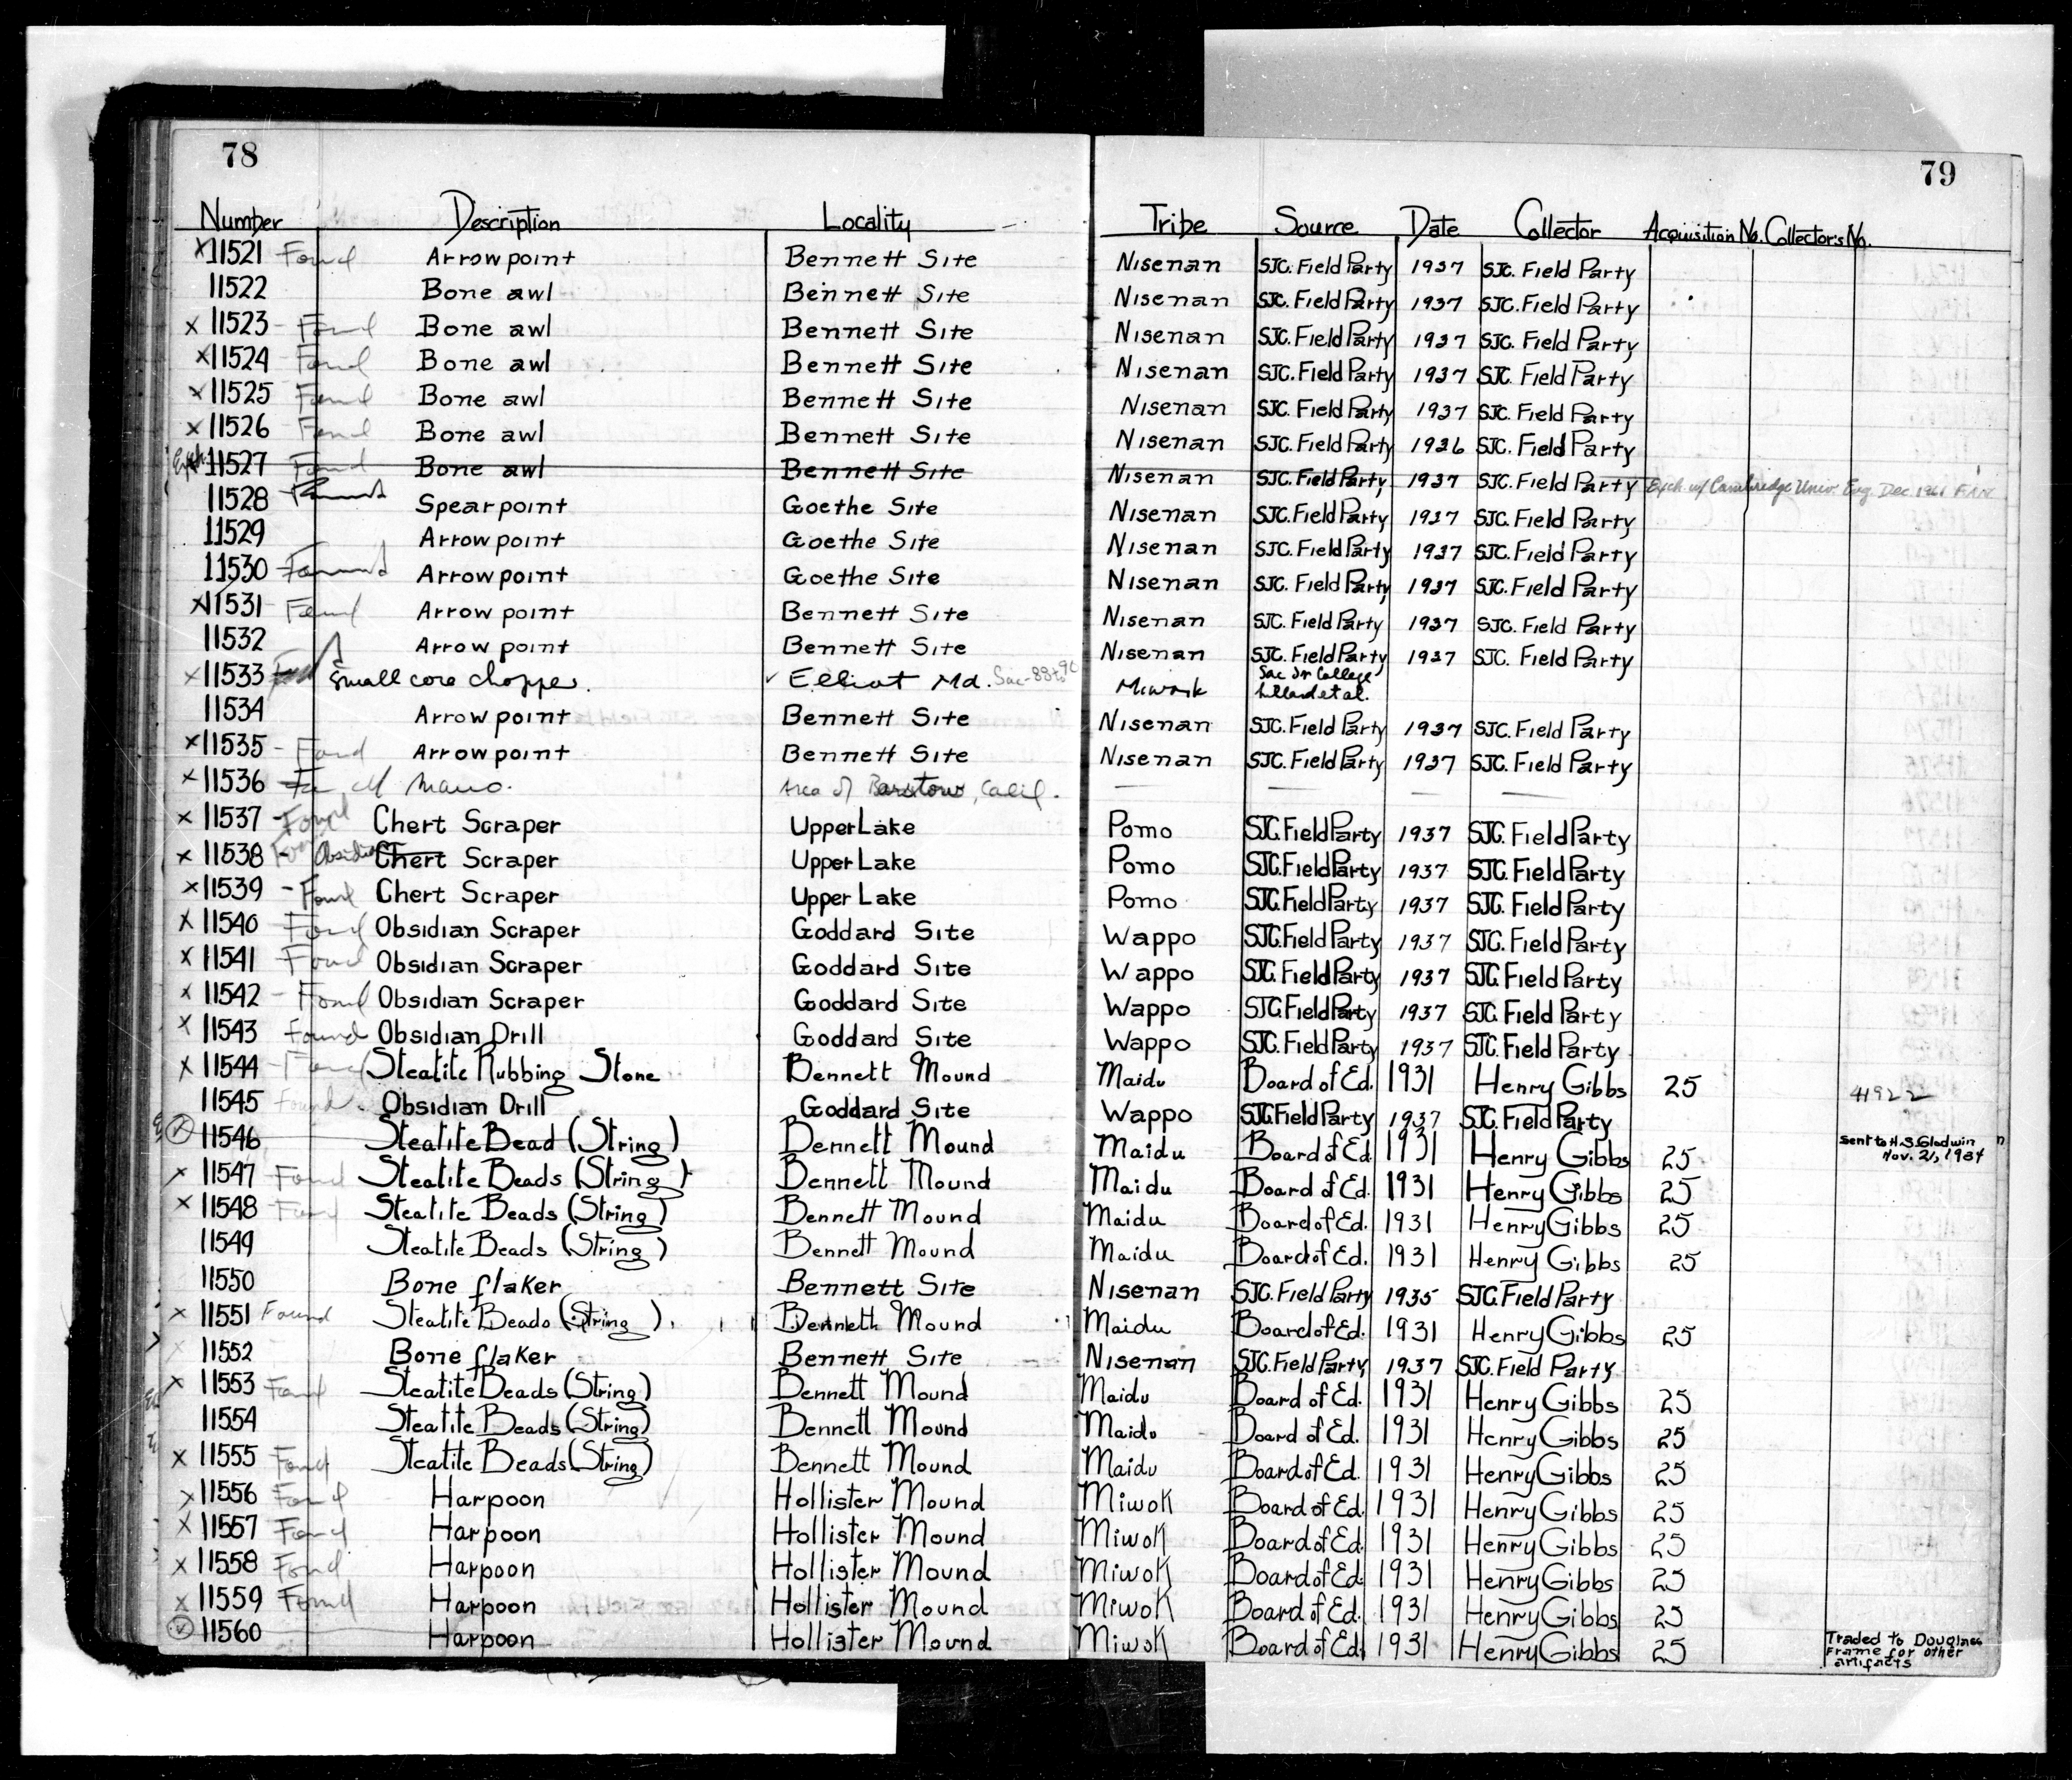 78
79
Number Description Locality Tribe Source Date Collector Acquisition No. Collector's No.
x 11521 Found Arrow point Bennett Site Nisenan SJC. Field Party 1937 SJC. Field Party
11522 Bone awl Bennett Site Nisenan SJC. Field Party 1937 SJC. Field Party
x 11523 - Found Bone awl Bennett Site Nisenan SJC. Field Party 1937 SJC. Field Party
x 11524 Found Bone awl Bennett Site Nisenan SJC. Field Party 1937 SJC. Field Party
x 11525 Found Bone awl Bennett Site Nisenan SJC. Field Party 1937 SJC. Field Party
x 11526 Found Bone awl Bennett Site Nisenan SJC. Field Party 1936 SJC. Field Party
11527 Found Bone awl Bennett Site Nisenan SJC. Field Party 1937 SJC. Field Party Exch. w/ Cambridge Univ. Eng. Dec 1961
11528 Spearpoint Goethe Site Nisenan SJC. Field Party 1937 SJC. Field Party
11529 Arrow point Goethe Site Nisenan SJC. Field Party 1937 SJC. Field Party
11530 Arrow point Goethe Site Nisenan SJC. Field Party 1937 SJC. Field Party
x 11531 - Found Arrow point Bennett Site Nisenan SJC. Field Party 1937 SJC. Field Party
11532 Arrow point Bennett Site Nisenan SJC. Field Party 1937 SJC. Field Party
x 11533 Small core chopper. ✓ Elliot Md. Miwok Sac Jr College
Lillard et al.
11534 Arrow point Bennett Site Nisenan SJC. Field Party 1937 SJC. Field Party
x 11535 - Found Arrow point Bennett Site Nisenan SJC. Field Party 1937 SJC. Field Party
x 11536 Mano. Area of Barstow, Calif. — — — —
x 11537 - Found Chert Scraper Upper Lake Pomo SJC. Field Party 1937 SJC. Field Party
x 11538 - Found Obsidian Chert Scraper Upper Lake Pomo SJC. Field Party 1937 SJC. Field Party
x 11539 - Found Chert Scraper Upper Lake Pomo SJC. Field Party 1937 SJC. Field Party
x 11540 Found Obsidian Scraper Goddard Site Wappo SJC. Field Party 1937 SJC. Field Party
x 11541 Found Obsidian Scraper Goddard Site Wappo SJC. Field Party 1937 SJC. Field Party
x 11542 - Found Obsidian Scraper Goddard Site Wappo SJC. Field Party 1937 SJC. Field Party
x 11543 Found Obsidian Drill Goddard Site Wappo SJC. Field Party 1937 SJC. Field Party
x 11544 - Found Steatite Rubbing Stone Bennett Mound Maidu Board of Ed. 1931 Henry Gibbs 25
11545 Found Obsidian Drill Goddard Site Wappo SJC. Field Party 1937 SJC. Field Party 41922
11546 Steatite Bead (String) Bennett Mound Maidu Board of Ed 1931 Henry Gibbs 25 Sent to H.S. Gladwin
Nov. 21, 1934
x 11547 Found Steatite Beads (String) Bennett Mound Maidu Board of Ed. 1931 Henry Gibbs 25
x 11548 Found Steatite Beads (String) Bennett Mound Maidu Board of Ed. 1931 Henry Gibbs 25
11549 Steatite Beads (String) Bennett Mound Maidu Board of Ed. 1931 Henry Gibbs 25
11550 Bone flaker Bennett Site Nisenan SJC. Field Party 1935 SJC. Field Party
x 11551 Found Steatite Beads (String) Bennett Mound Maidu Board of Ed. 1931 Henry Gibbs 25
x 11552 Bone flaker Bennett Site Nisenan SJC. Field Party 1937 SJC. Field Party
x 11553 Found Steatite Beads (String) Bennett Mound Maidu Board of Ed. 1931 Henry Gibbs 25
11554 Steatite Beads (String) Bennett Mound Maidu Board of Ed. 1931 Henry Gibbs 25
x 11555 Found Steatite Beads (String) Bennett Mound Maidu Board of Ed. 1931 Henry Gibbs 25
x 11556 Found Harpoon Hollister Mound Miwok Board of Ed. 1931 Henry Gibbs 25
x 11557 Found Harpoon Hollister Mound Miwok Board of Ed. 1931 Henry Gibbs 25
x 11558 Found Harpoon Hollister Mound Miwok Board of Ed. 1931 Henry Gibbs 25
x 11559 Found Harpoon Hollister Mound Miwok Board of Ed. 1931 Henry Gibbs 25
11560 Harpoon Hollister Mound Miwok Board of Ed. 1931 Henry Gibbs 25 Traded to Douglass
Frame for other
artifacts